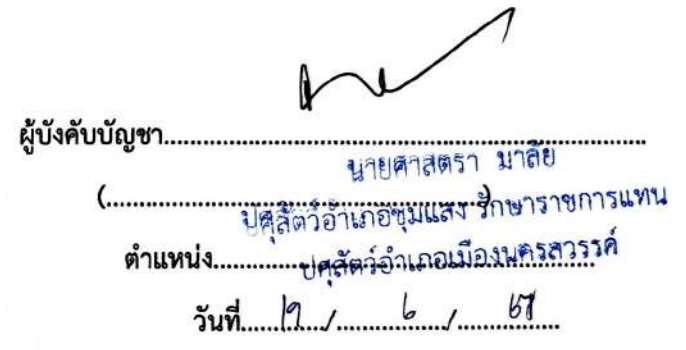 ผู้บังคับบัญชา..........................................................................
นายศาสตรา มาลัย
(..........................................................)
ปศุสัตว์อำเภอชุมแสง รักษาราชการแทน
ตำแหน่ง..........................................................
ปศุสัตว์อำเภอเมืองนครสวรรค์
วันที่ / ๖ /